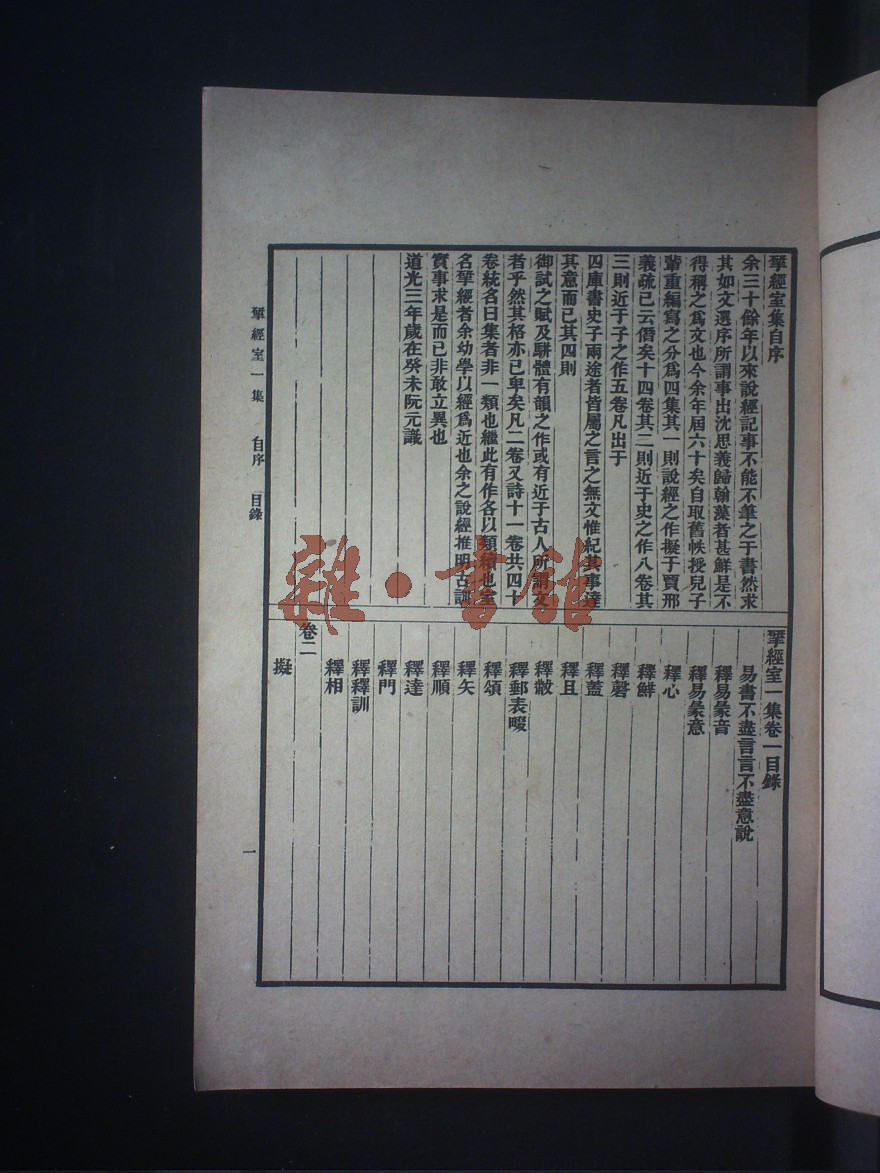 揅經室集自序
余三十餘年以來說經記事不能不筆之于書然求
其如文選序所謂事出沈思義歸翰藻者甚鮮是不
得稱之爲文也今余年屆六十矣自取舊帙授兒子
輩重編寫之分爲四集其一則說經之作擬于賈邢
義疏已云僭矣十四卷其二則近于史之作八卷其
三則近于子之作五卷凡出于
四庫書史子兩途者皆屬之言之無文惟紀其事達
其意而已其四則
御試之賦及駢體有韻之作或有近于古人所謂文
者乎然其格亦已卑矣凡二卷又詩十一卷共四十
卷統名曰集者非一類也繼此有作各以類續也室
名揅經者余幼學以經爲近也余之說經推明古訓
實事求是而已非敢立異也
道光三年歲在癸未阮元識
揅經室一集卷一目錄
易書不盡言言不盡意說
釋易彖音
釋易彖意
釋心
釋鮮
釋磬
釋蓋
釋且
釋黻
釋郵表畷
釋頌
釋矢
釋順
釋達
釋門
釋釋訓
釋相
卷二
擬
揅經室一集 自序 目錄
一
雜·書館